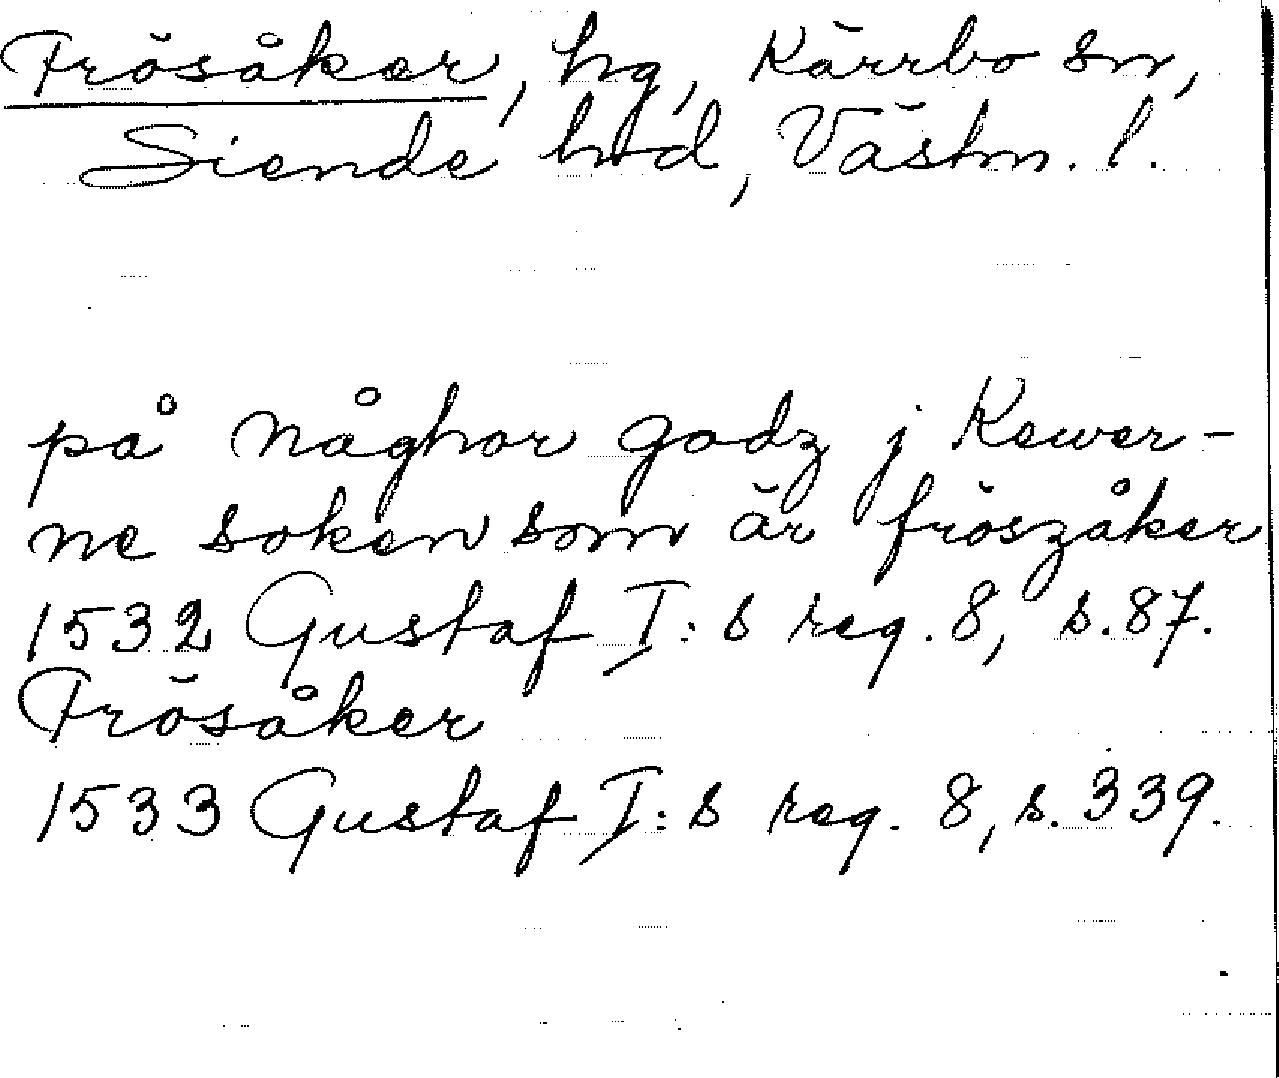 Frösåker, hg, Kärrbo sn,
Siende hrd, Västm. l.
på någhor godz j Kewer-
ne soken som är fröszåker
1532 Gustaf I:s reg. 8, s. 87.
Frösåker
1533 Gustaf I:s reg. 8, s. 339.